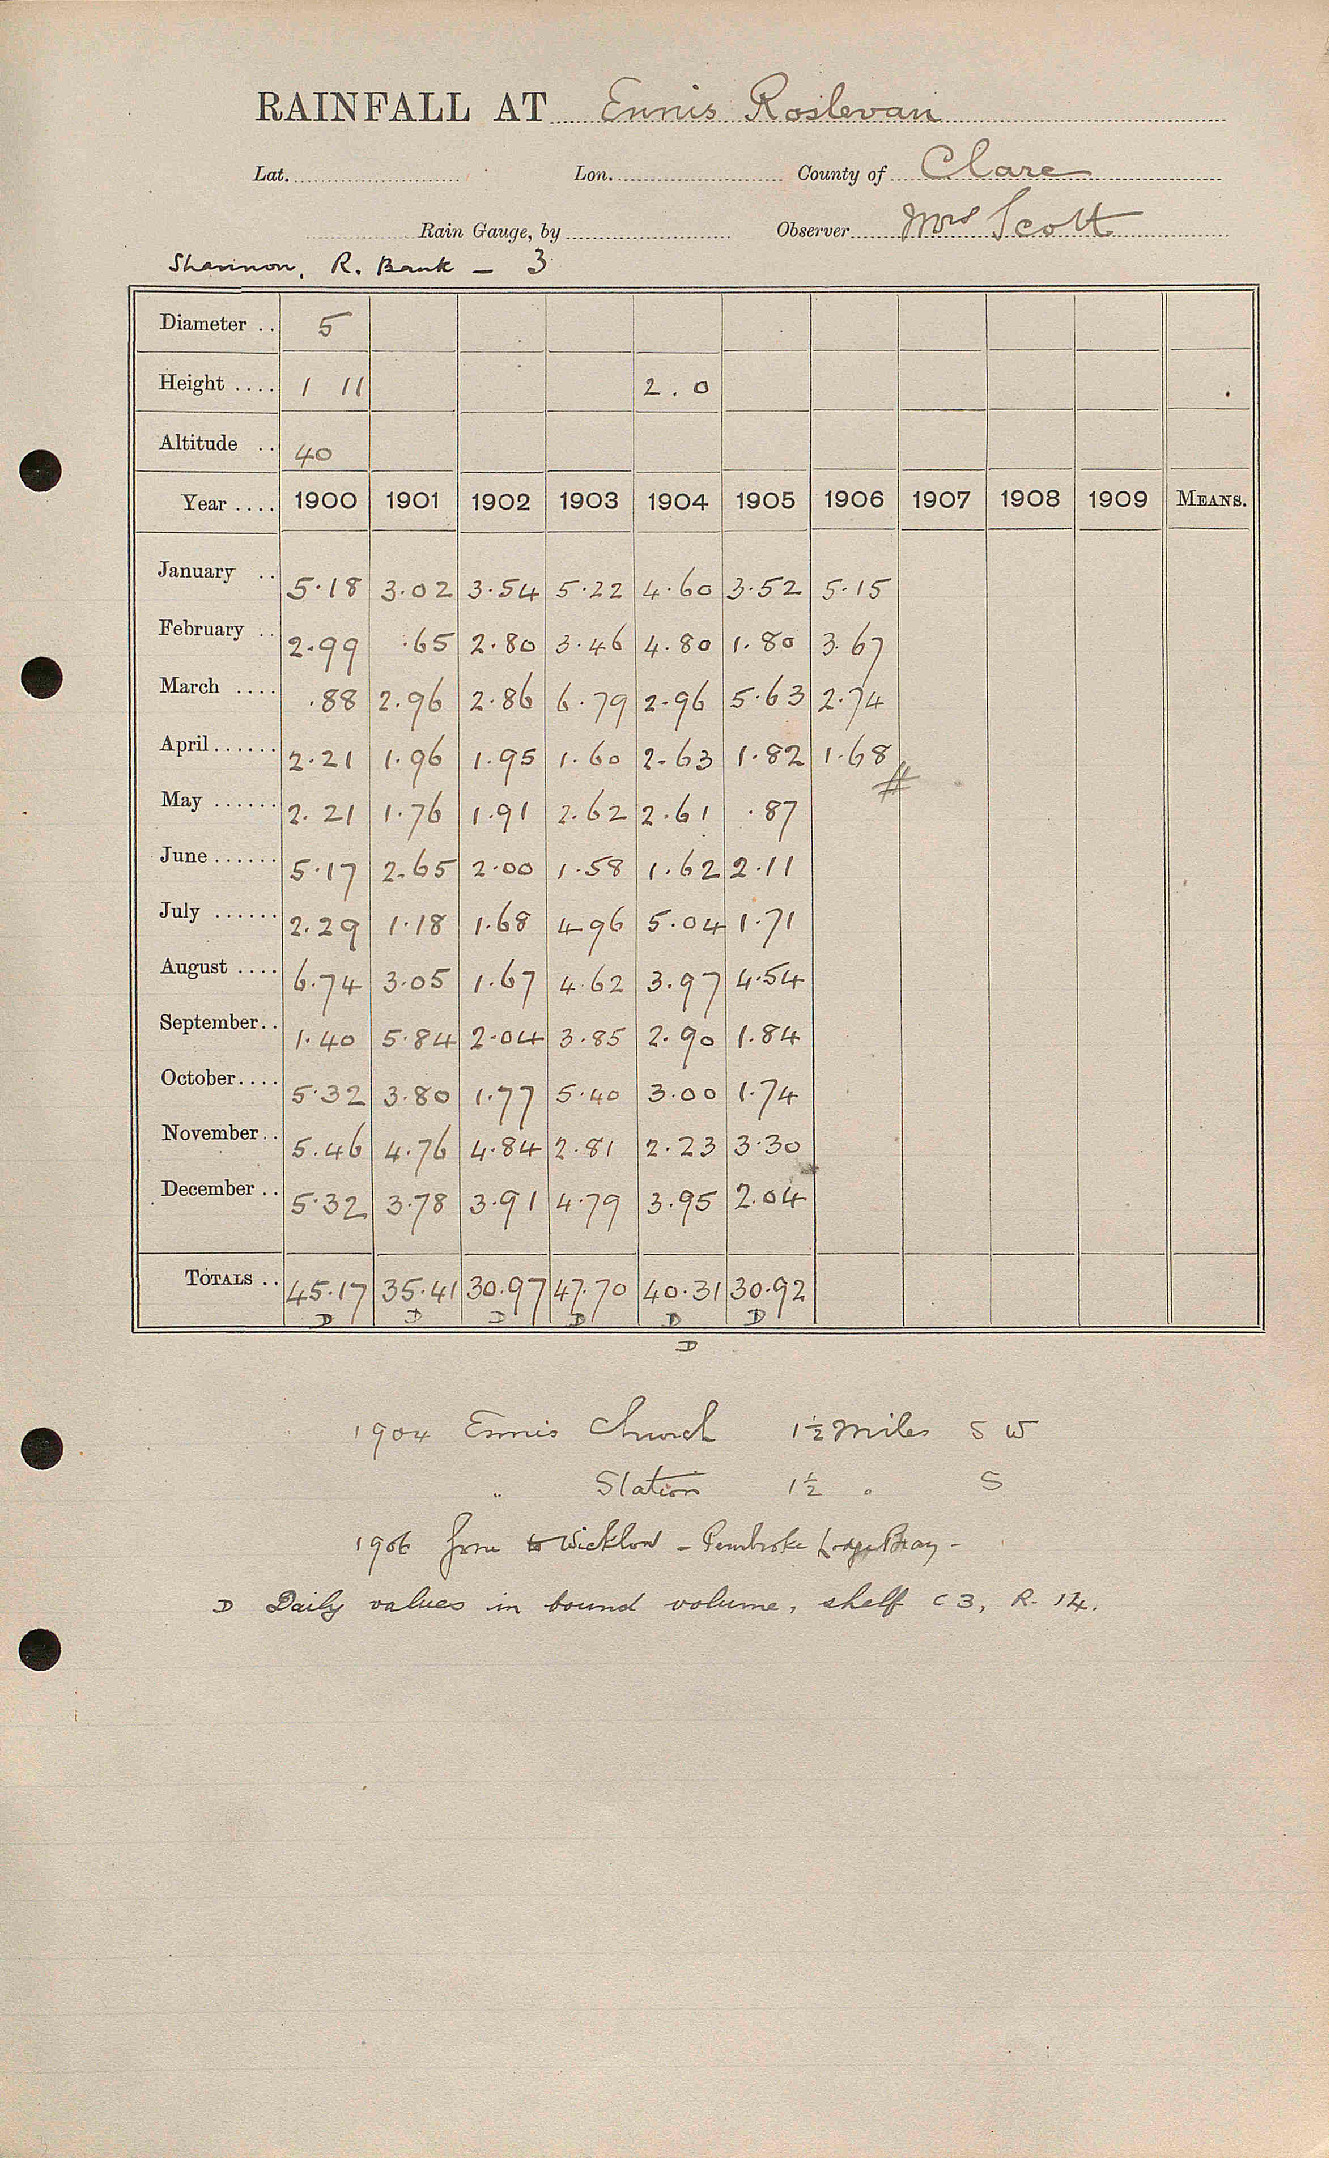 RAINFALL AT Ennis Roslevan
Lat. Lon. County of Clare
Rain Gauge, by Observer Mrs Scott
Shannon, R. Bank — 3
Diameter .. 5
Height .... 1 11 2.0
Altitude .. 40
Year .... 1900 1901 1902 1903 1904 1905 1906 1907 1908 1909 MEANS.
January .. 5.18 3.02 3.54 5.22 4.60 3.52 5.15
February .. 2.99 .65 2.80 3.46 4.80 1.80 3.67
March .... .88 2.96 2.86 6.79 2.96 5.63 2.74
April...... 2.21 1.96 1.95 1.60 2.63 1.82 1.68
May ...... 2.21 1.76 1.91 2.62 2.61 .87
June...... 5.17 2.65 2.00 1.58 1.62 2.11
July ...... 2.29 1.18 1.68 4.96 5.04 1.71
August .... 6.74 3.05 1.67 4.62 3.97 4.54
September.. 1.40 5.84 2.04 3.85 2.90 1.84
October.... 5.32 3.80 1.77 5.40 3.00 1.74
November.. 5.46 4.76 4.84 2.81 2.23 3.30
December .. 5.32 3.78 3.91 4.79 3.95 2.04
TOTALS .. 45.17 35.41 30.97 47.70 40.31 30.92
D D D D D D
D
1904 Ennis Church 1½ miles S W
" Station 1½ " S
1906 Gone to Wicklow – Pembroke Lodge Bray –
D Daily values in bound volume, shelf C 3, R. 14.